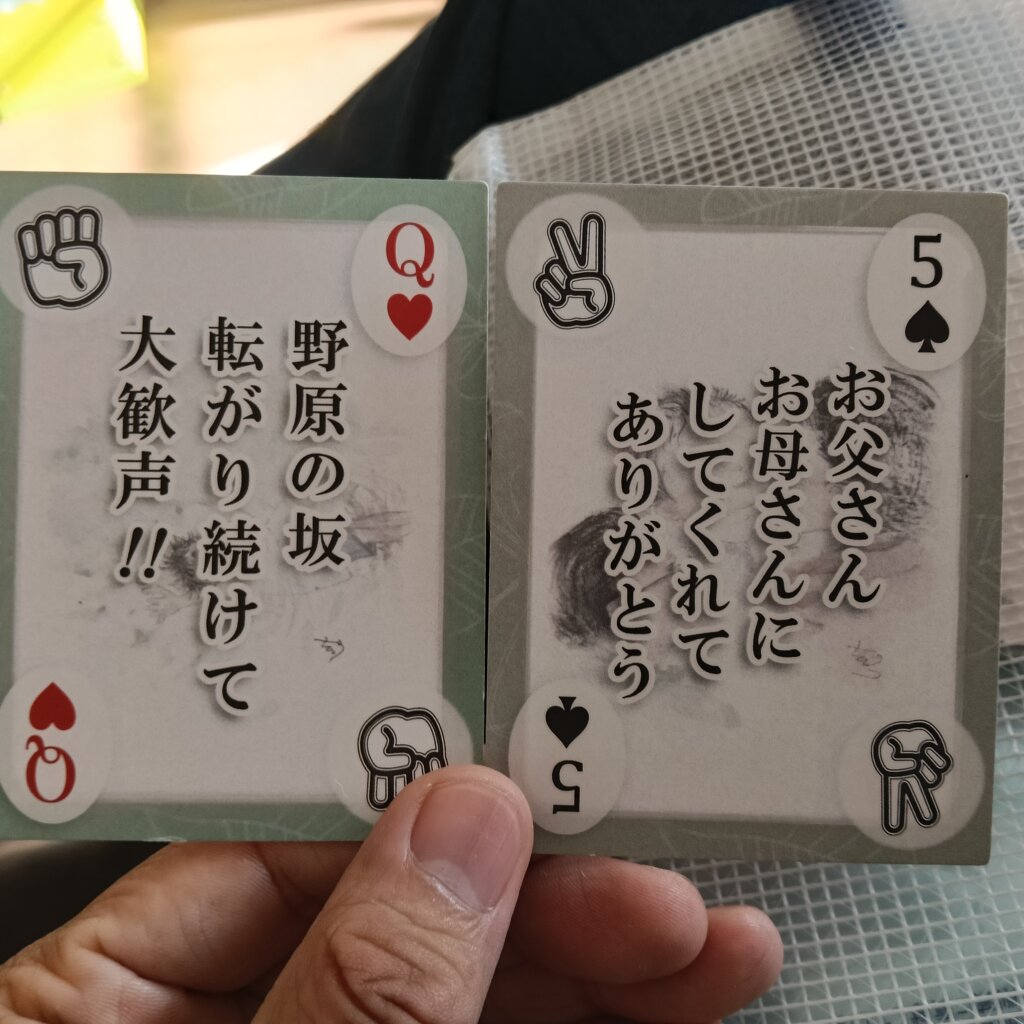 Q
野原の坂
転がり続けて
大歓声!!
Q
5
お父さん
お母さんに
してくれて
ありがとう
5